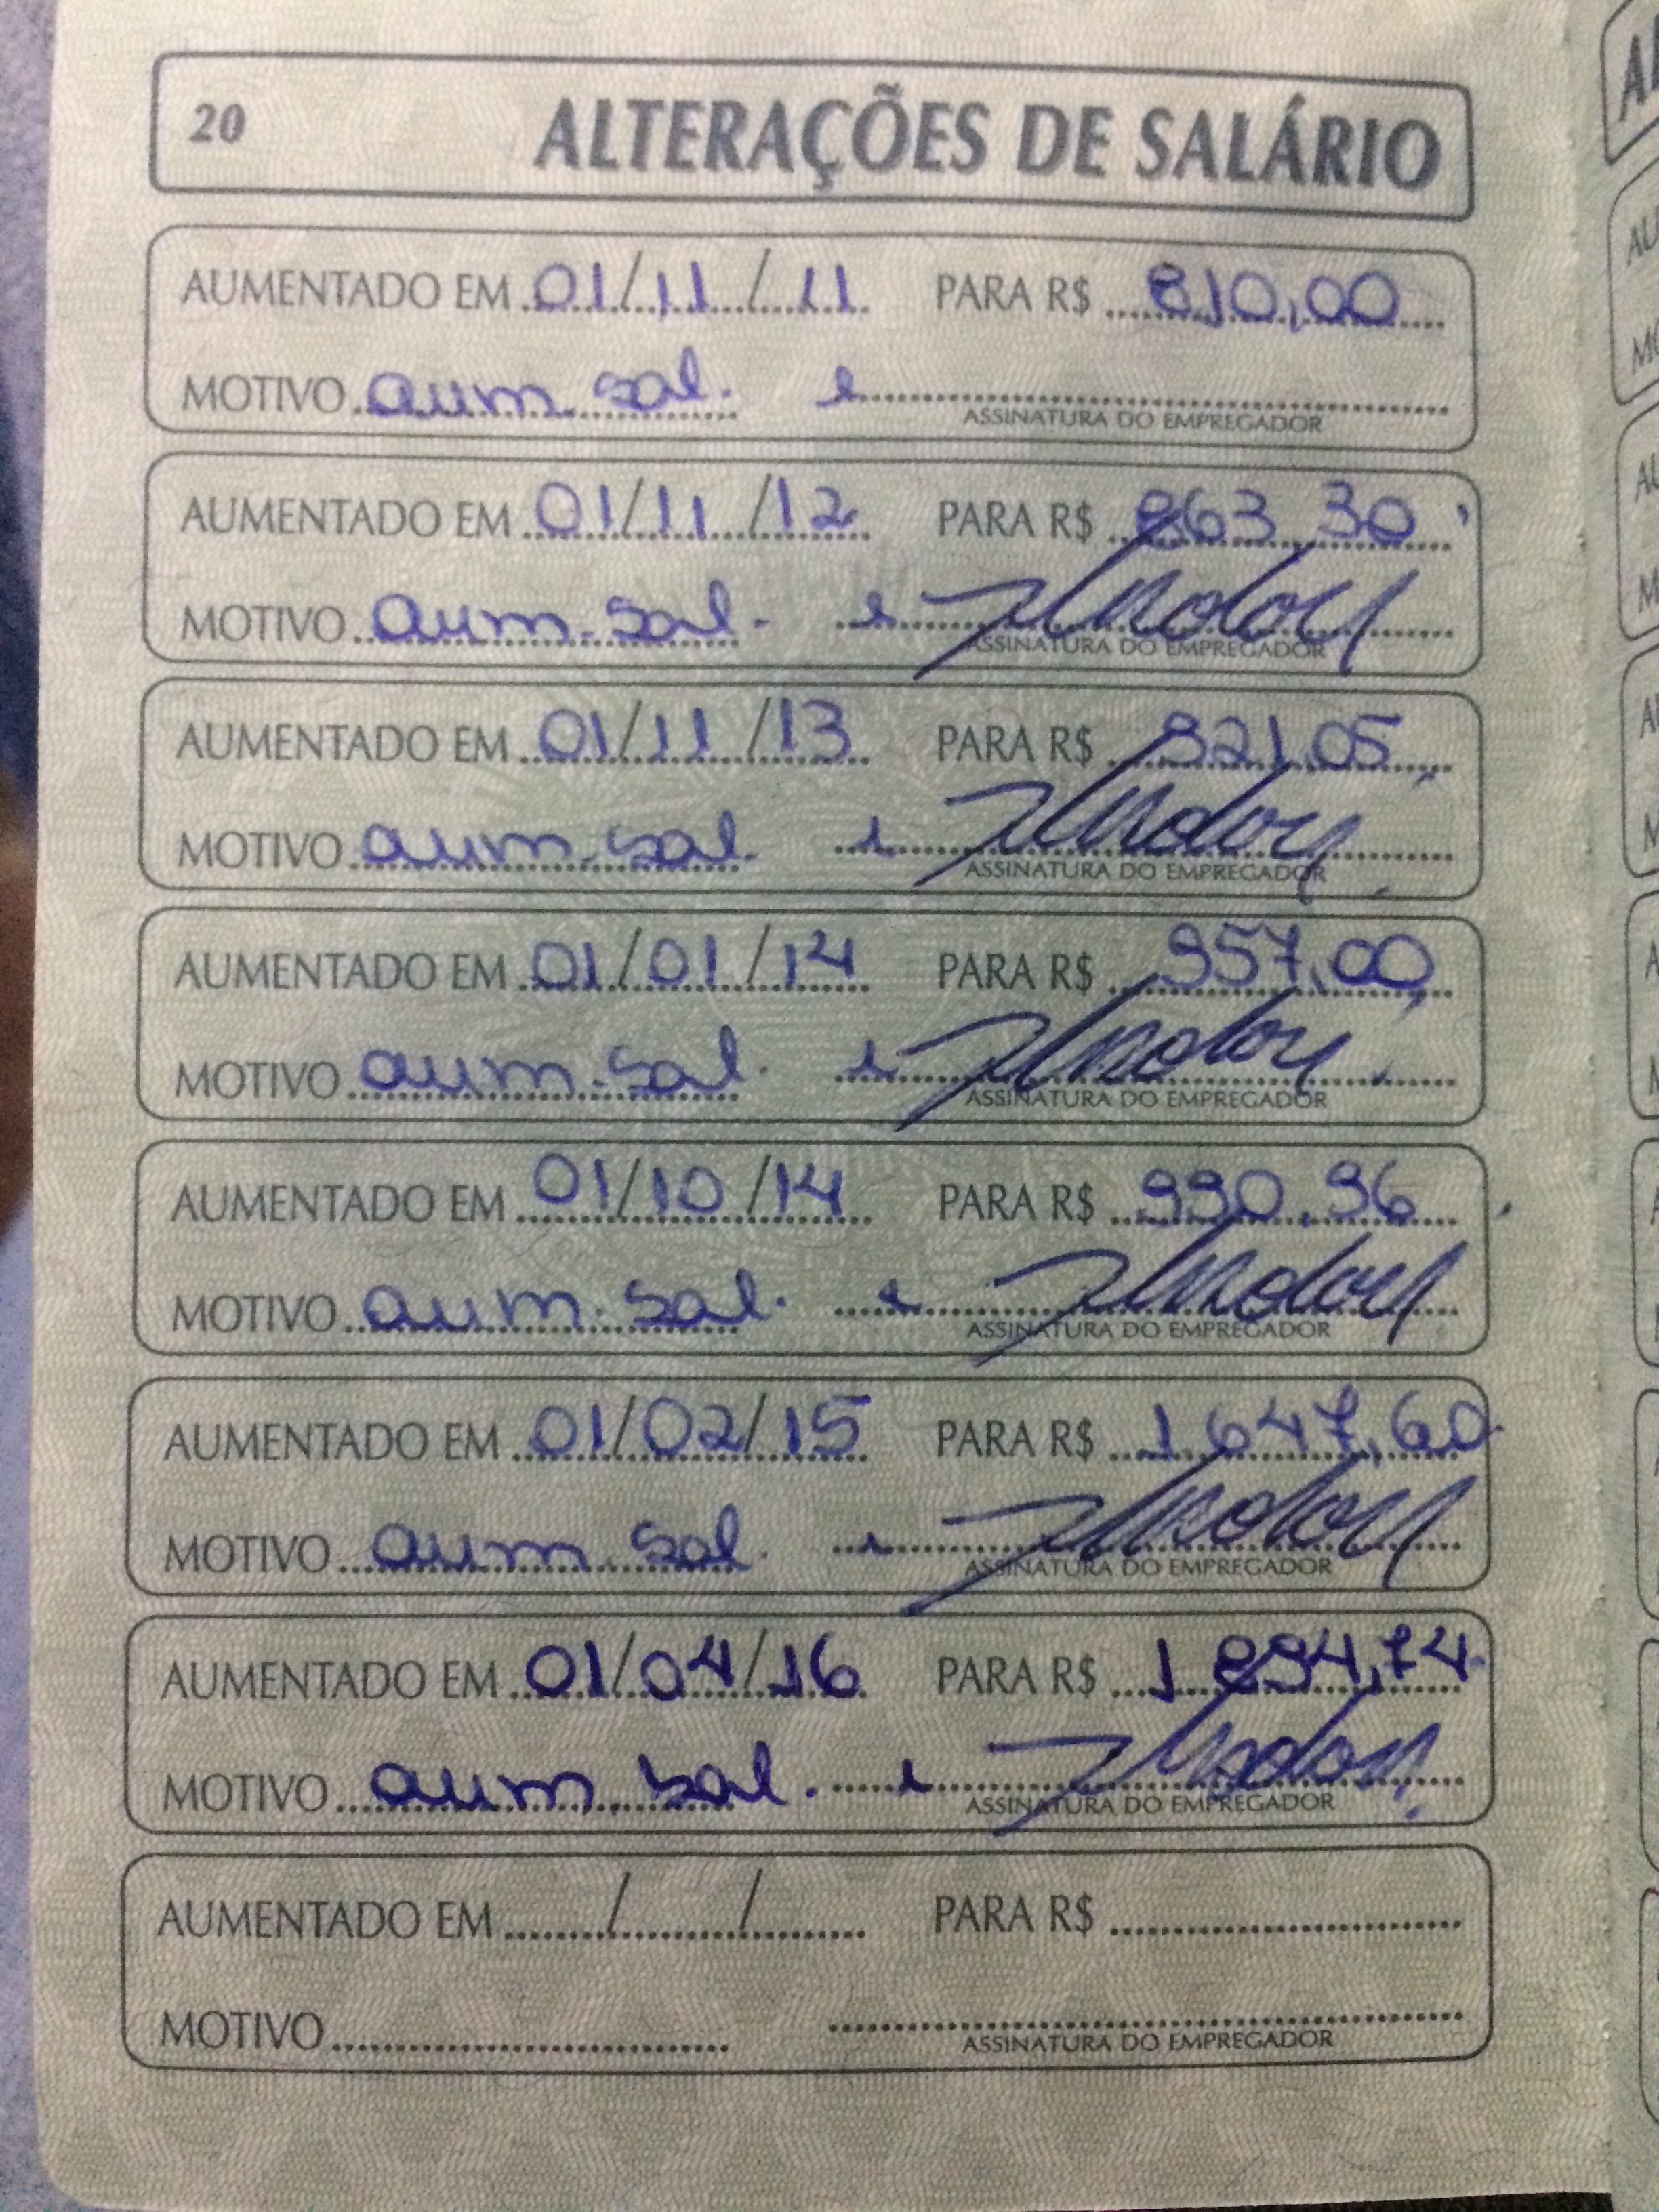 20 ALTERAÇÕES DE SALÁRIO
AUMENTADO EM 01/11/11 PARA R$ 810,00
MOTIVO aum. sal.
ASSINATURA DO EMPREGADOR
AUMENTADO EM 01/11/12 PARA R$ 863,30
MOTIVO aum. sal.
ASSINATURA DO EMPREGADOR
AUMENTADO EM 01/11/13 PARA R$ 921,05
MOTIVO aum. sal.
ASSINATURA DO EMPREGADOR
AUMENTADO EM 01/01/14 PARA R$ 957,00
MOTIVO aum. sal.
ASSINATURA DO EMPREGADOR
AUMENTADO EM 01/10/14 PARA R$ 990,96
MOTIVO aum. sal.
ASSINATURA DO EMPREGADOR
AUMENTADO EM 01/02/15 PARA R$ 1.647,60
MOTIVO aum. sal.
ASSINATURA DO EMPREGADOR
AUMENTADO EM 01/04/16 PARA R$ 1.894,74
MOTIVO aum. sal.
ASSINATURA DO EMPREGADOR
AUMENTADO EM / / PARA R$
MOTIVO
ASSINATURA DO EMPREGADOR